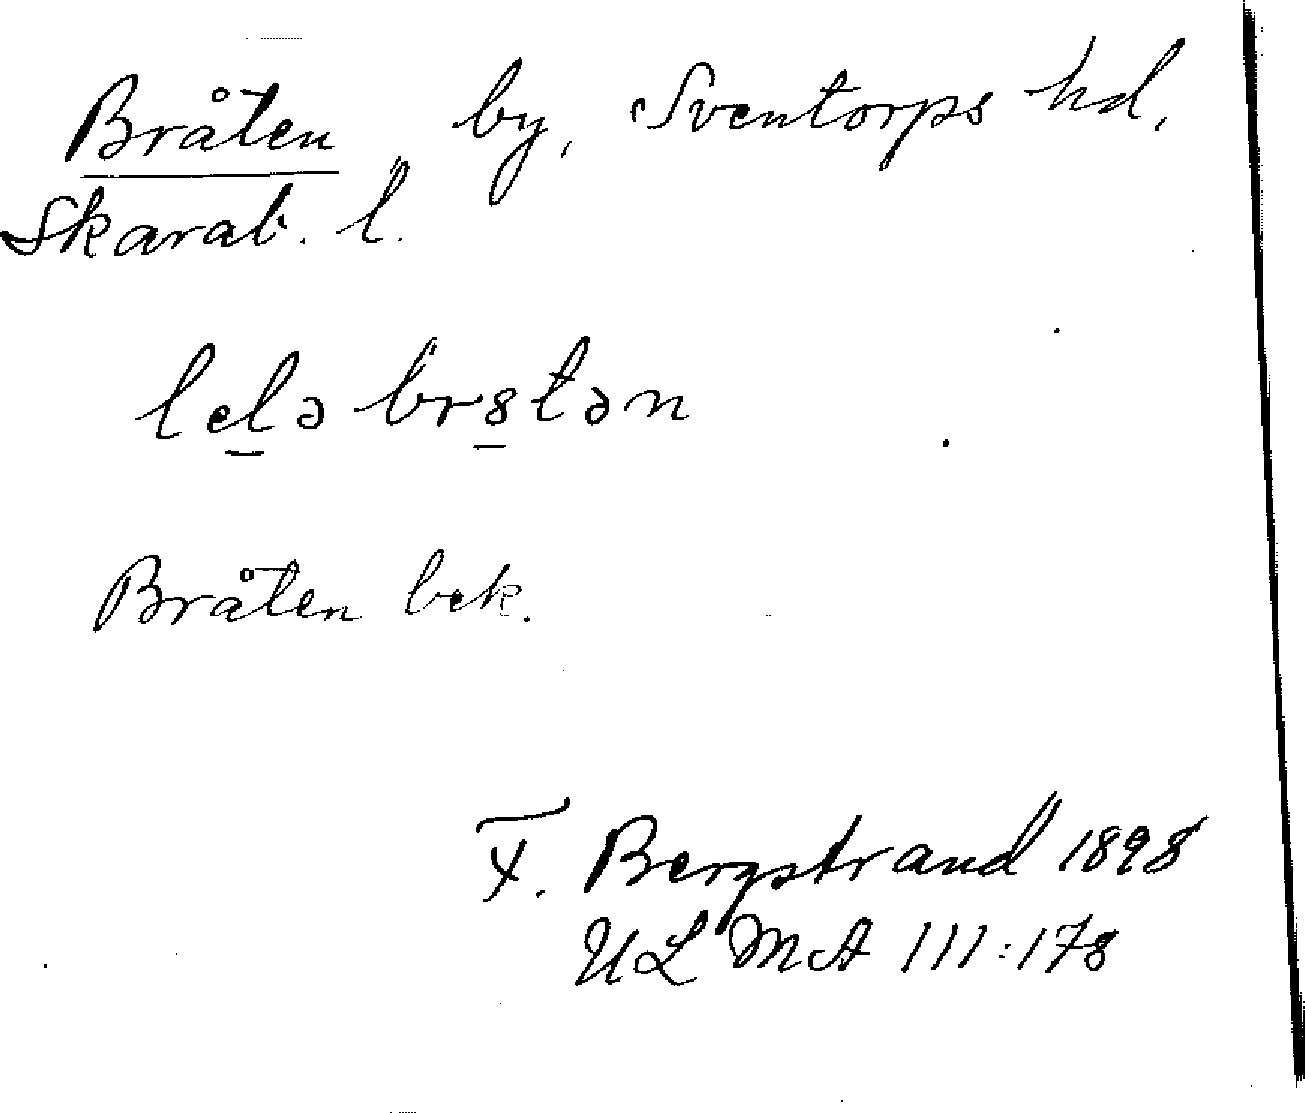 Bråten by, Sventorps hd,
Skarab. l.
lelə br8tən
Bråten bek.
F. Bergstrand 1898
ULMA 111:178